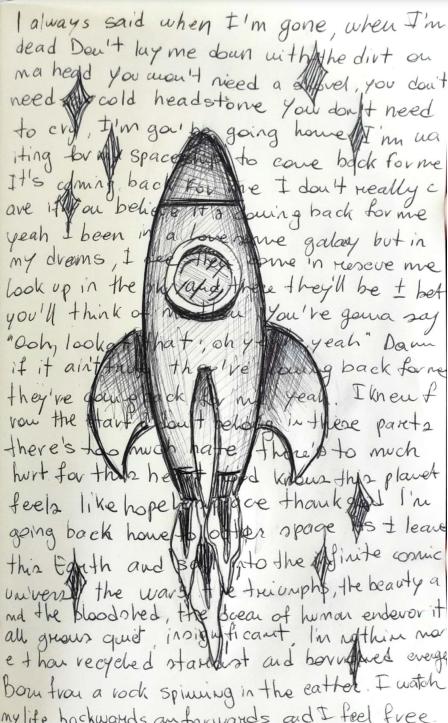 I always said when I'm gone, when I'm
dead Don't lay me down with the dirt on
ma head you won't need a shovel, you don't
need cold headstone You don't need
to cry, I'm gon' be going home I'm wa
iting for my spaceship to come back for me
It's coming back for me I don't really c
are if you believe it's coming back for me
yeah I been in a lonesome galaxy but in
my dreams, I see them come in rescue me
Look up in the sky and there they'll be I bet
you'll think of me then You've gonna say
"Ooh, look at that, oh yeah, yeah" Damn
if it ain't true they've coming back for me
they're coming back for me yeah. I knew f
rom the start I don't belong in these parts
there's too much hate, there's to much
hurt for this heart knows this planet
feels like hopeless place thank god I'm
going back home to outter space As I leave
this Earth and sail into the infinite cosmic
univers the wars the triumphs, the beauty a
nd the bloodshed, the ocean of human endevor it
all grows quiet, insignificant, I'm nothin mor
e than recycled stardust and borrowed energy
Born from a rock spinning in the eather. I watch
my life backwards an forwards and I feel free